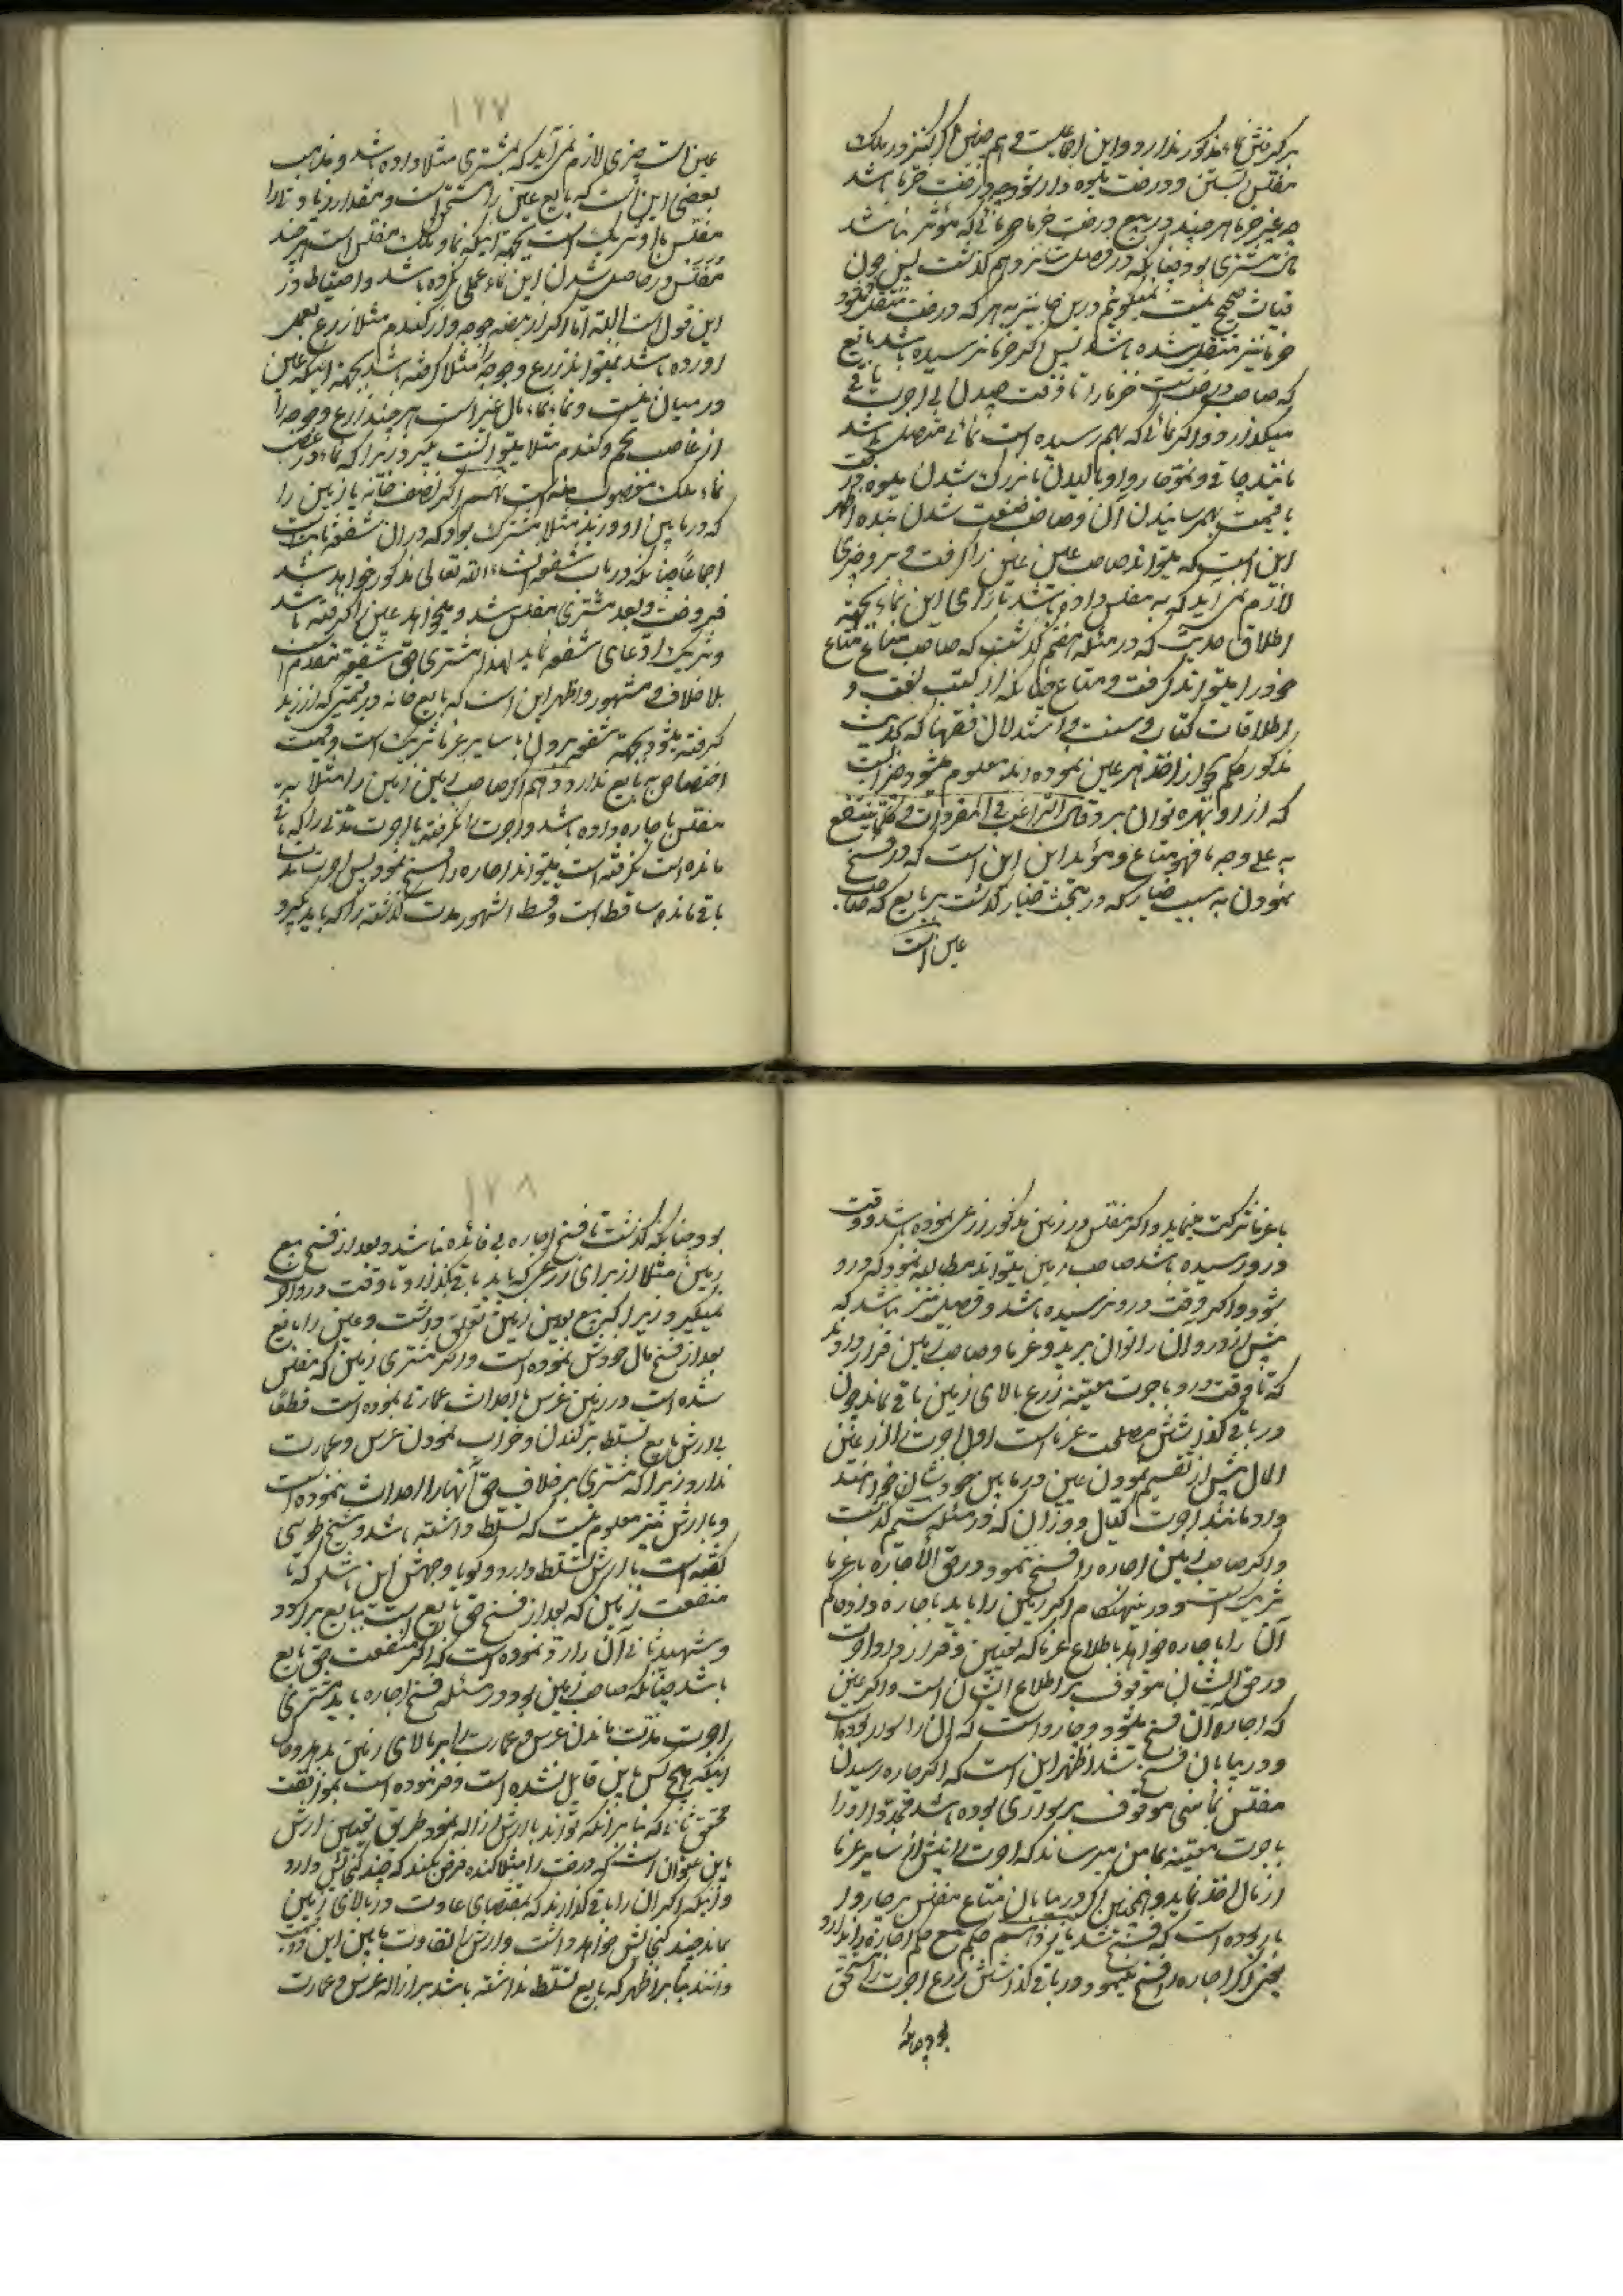 مفلس آبستن و درخت میوه‌دار شود چه درخت خرما باشد
چه غیر خرما هر چند در بیع درخت خرما
مال مشتری بود چنانکه در فصل شانزدهم گذشت پس چون
قیاس صحیح نیست نمیگوئیم درین جا نیز به هر که درخت منتقل شود
خرما نیز منتقل شده باشد پس اگر خرما نرسیده باشد بایع
که صاحب درخت است خرما را تا وقت چیدن بی اجرت باقی
میگذارد و اگر نمائی که بهم رسیده است نمائی متصل باشد
مانند چاقی و نمو چاروا و بالیدن یا بزرگ شدن میوه درخت
یا قیمت بهم رسانیدن آن و صاحب صنعت شدن بنده اظهر
این است که میتواند صاحب عین عین را گرفت و برو چیزی
لازم نمی آید که به مفلس داده باشد بازای این نماء بجهة
اطلاق حدیث که در مسئله هفتم گذشت که صاحب متاع متاع
خود را میتواند گرفت و متاع چنانکه از کتب لغت و
اطلاقات کتاب و سنت و استدلال فقها که بحدیث
مذکور حکم بجواز اخذ هر عین نموده اند معلوم میشود چیزیست
که ازو بهره توان برد و قال الراغب فی المفردات و کلما ینتفع
به علی وجه ما فهو متاع و مؤید این این است که در فسخ
نمودن به سبب خیار که در مبحث خیار گذشت بر بایع که صاحب
عین است
۱۲۷
عین است چیزی لازم نمی آید که بمشتری مثلا داده باشد و مذهب
بعضی این است که بایع عین را مستحق است و مقدار زیادتی را
مفلس با او شریک است بجهة اینکه نماء ملک مفلس است هر چند
مفلس در حاصل شدن این نماء عملی نکرده باشد و احتیاط در
این قول است البته اما اگر از بیضه جوجه و از گندم مثلا زرع بعمل
آورده باشد نمیتواند زرع و جوجه را مثلا گرفته باشد بجهة اینکه عین
در میان نیست و نماء نماء مال غیر است هر چند زرع و جوجه را
از غاصب تخم و گندم مثلا میتوانست بگیرد زیرا که نماء در غصب
نماء ملک مغصوب منه است نهم اگر نصف خانه یا زمین را
که در مابین او و زید مثلا مشترک بود که در آن شفعه ثابت است
اجماعا چنانکه در باب شفعه انشاء الله تعالی مذکور خواهد شد
فروخت و بعد مشتری مفلس شد و میخواهد عین را گرفته باشد
و شریک ادعای شفعه نماید لهذا مشتری حق شفیع مقدم است
بلا خلاف و مشهور و اظهر این است که بایع خانه در قیمتی که از زید
گرفته میشود بجهة شفعه برو با سایر غرما شریک است و قیمت
اختصاص به بایع ندارد دهم اگر صاحب زمین زمین را مثلا به
مفلس باجاره داده باشد و اجرت را نگرفته یا اجرت مدتی را که باقی
مانده است نگرفته است میتواند اجاره را فسخ نمود پس اجرت مدت
باقی مانده ساقط است و قسط اشهر مدت گذشته را که باید بگیرد
با غرما شرکت مینماید و اگر مفلس در زمین مذکور زرعی نموده باشد و وقت
درو رسیده باشد صاحب زمین میتواند مطالبه نمود که درو
شود و اگر وقت درو نرسیده باشد و فصیل نیز نباشد که
پیش از درو آن را توان برید و غرما و صاحب زمین قرار دادند
که تا وقت درو باجرت معینه زرع بالای زمین باقی بماند چون
در باقی گذاشتنش مصلحت غرما است اول اجرت را از عین
المال پیش از تقسیم نمودن عین در مابین خودشان خواهند
داد مانند اجرت کیال و وزان که در مسئله ششم گذشت
و اگر صاحب زمین اجاره را فسخ ننمود در حق الاجاره با غرما
شریک است و در نیهنگام اگر زمین را باید باجاره داد حاکم
آن را باجاره خواهد باطلاع غرما که تعیین و قرارداد اجرت
در حق ایشان موقوف بر اطلاع ایشان است و اگر عین
که اجاره آن فسخ میشود چاروا است که آن را بودن بوده است
و در بیابان فسخ شد اظهر این است که اگر چاره رسیدن
مفلس بمأمنی موقوف بر بودن آن بوده باشد چاروا او را
باجرت معینه بمأمن میرساند که اجرت را پیش از سایر غرما
از مال اخذ نماید و همچنین اگر در بیابان متاع مفلس بر چاروا
بار بوده است که فسخ شد یازدهم حکم بیع حکم اجاره را ندارد
یعنی اگر اجاره را فسخ مینمود در باقی گذاشتن زرع اجرت را مستحق
بود چنانکه
۱۲۸
بود چنانکه گذشت تا فسخ اجاره بی فائده نباشد و بعد از فسخ بیع
زمین مثلا از برای زرعی که باید باقی بگذارد تا وقت درو اجرت
نمیگیرد زیرا که بیع بعین زمین تعلق داشت و عین را بایع
بعد از فسخ مال خودش نموده است و اگر مشتری زمین که مفلس
شده است در زمین غرس یا احداث عمارتی نموده است قطعا
بی ارش بایع تسلط بر کندن و خراب نمودن غرس و عمارت
ندارد زیرا که مشتری بر خلاف حق آنها را احداث ننموده است
و با ارش نیز معلوم نیست که تسلط داشته باشد و شیخ طوسی
گفته است با ارش تسلط دارد و گویا وجهش این باشد که
منفعت زمین که بعد از فسخ حق بایع است ببایع برگردد
و شهید ثانی آن را رد نموده است که اگر منفعت حق بایع
باشد چنانکه صاحب زمین بود در مسئله فسخ اجاره باید مشتری
اجرت مدت ماندن غرس و عمارت را بر بالای زمین بدهد و حال
اینکه هیچ کس باین قایل نشده است و فرموده است بموافقت
محقق ثانی که بنا بر اینکه تواند با ارش ازاله نمود طریق تعیین ارش
باین عنوان است که درخت را مثلا کنده فرض میکند که چند گنجائش دارد
و اینکه اگر آن را باقی گذارند که بمقتضای عادت در بالای زمین
بماند چند گنجائش خواهد داشت و ارش تفاوت مابین این دو قیمت
دانند بنا بر اظهر که بایع تسلط نداشته باشد بر ازاله غرس و عمارت